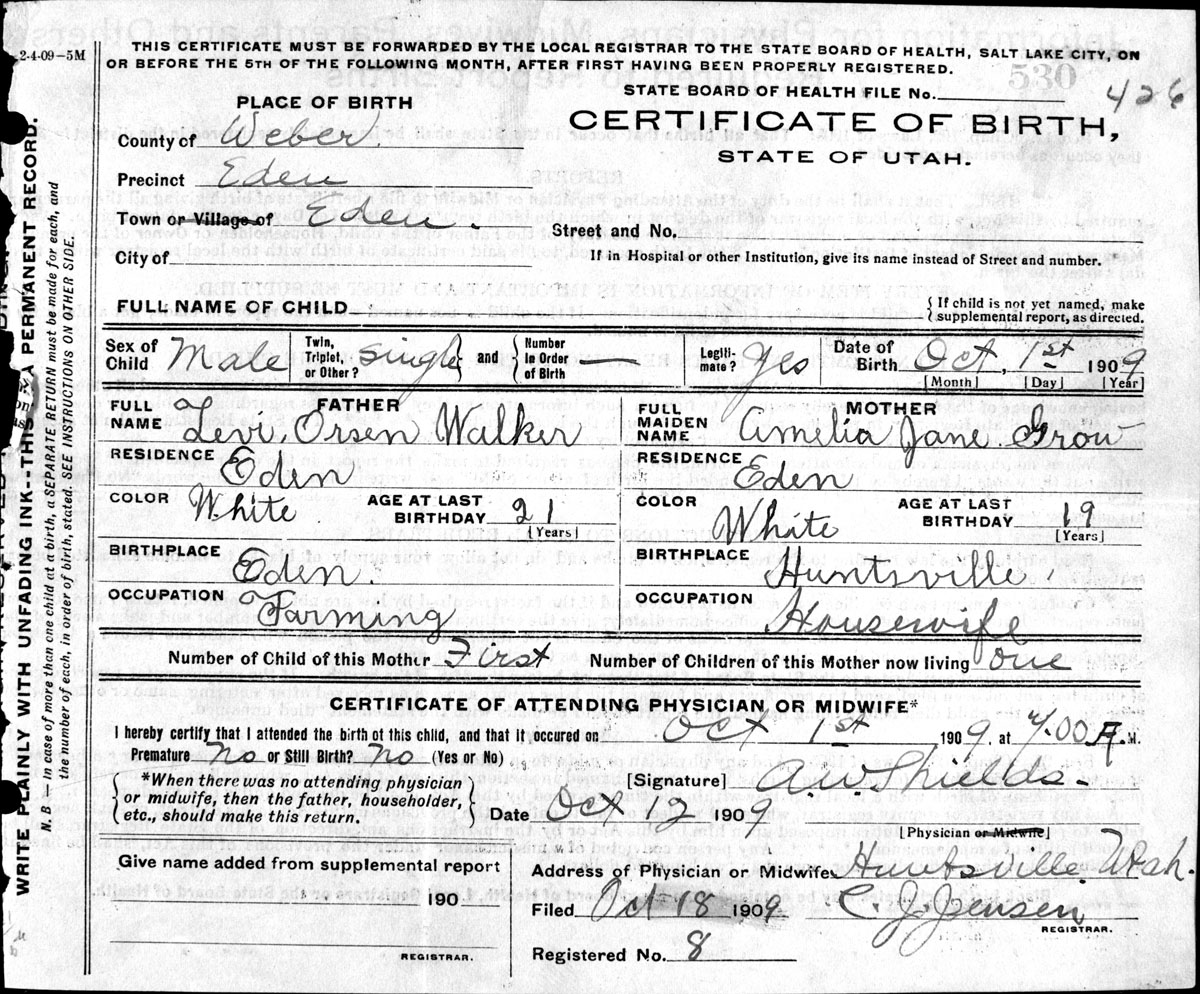 2-4-09-5M
THIS CERTIFICATE MUST BE FORWARDED BY THE LOCAL REGISTRAR TO THE STATE BOARD OF HEALTH, SALT LAKE CITY, ON
OR BEFORE THE 5TH OF THE FOLLOWING MONTH, AFTER FIRST HAVING BEEN PROPERLY REGISTERED.
530
STATE BOARD OF HEALTH FILE No. 426
CERTIFICATE OF BIRTH,
STATE OF UTAH.
PLACE OF BIRTH
County of Weber.
Precinct Eden
Town or Village of Eden
Street and No.
City of
If in Hospital or other Institution, give its name instead of Street and number.
FULL NAME OF CHILD
{ If child is not yet named, make
supplemental report, as directed.
Sex of Child Male
Twin, Triplet, or Other? Single } and { Number In Order of Birth —
Legiti- mate? Yes
Date of Birth Oct, 1st 1909
[Month] [Day] [Year]
FATHER
FULL NAME Levi. Orsen Walker
RESIDENCE Eden
COLOR White
AGE AT LAST BIRTHDAY 21
[Years]
BIRTHPLACE Eden.
OCCUPATION Farming
MOTHER
FULL MAIDEN NAME Amelia Jane Grow
RESIDENCE Eden
COLOR White
AGE AT LAST BIRTHDAY 19
[Years]
BIRTHPLACE Huntsville
OCCUPATION Housewife
Number of Child of this Mother First Number of Children of this Mother now living one
CERTIFICATE OF ATTENDING PHYSICIAN OR MIDWIFE*
I hereby certify that I attended the birth of this child, and that it occured on Oct 1st 1909, at 4.00 A. M.
Premature No or Still Birth? No (Yes or No)
{ *When there was no attending physician
or midwife, then the father, householder,
etc., should make this return. }
[Signature] A.W. Shields
Date Oct 12 1909
[Physician or Midwife]
Give name added from supplemental report
190
REGISTRAR.
Address of Physician or Midwife Huntsville Utah.
Filed Oct 18 1909 C. J. Jensen
REGISTRAR.
Registered No. 8
WRITE PLAINLY WITH UNFADING INK--THIS IS A PERMANENT RECORD.
N. B.—In case of more than one child at birth, a SEPARATE RETURN must be made for each, and
the number of each, in order of birth, stated. SEE INSTRUCTIONS ON OTHER SIDE.